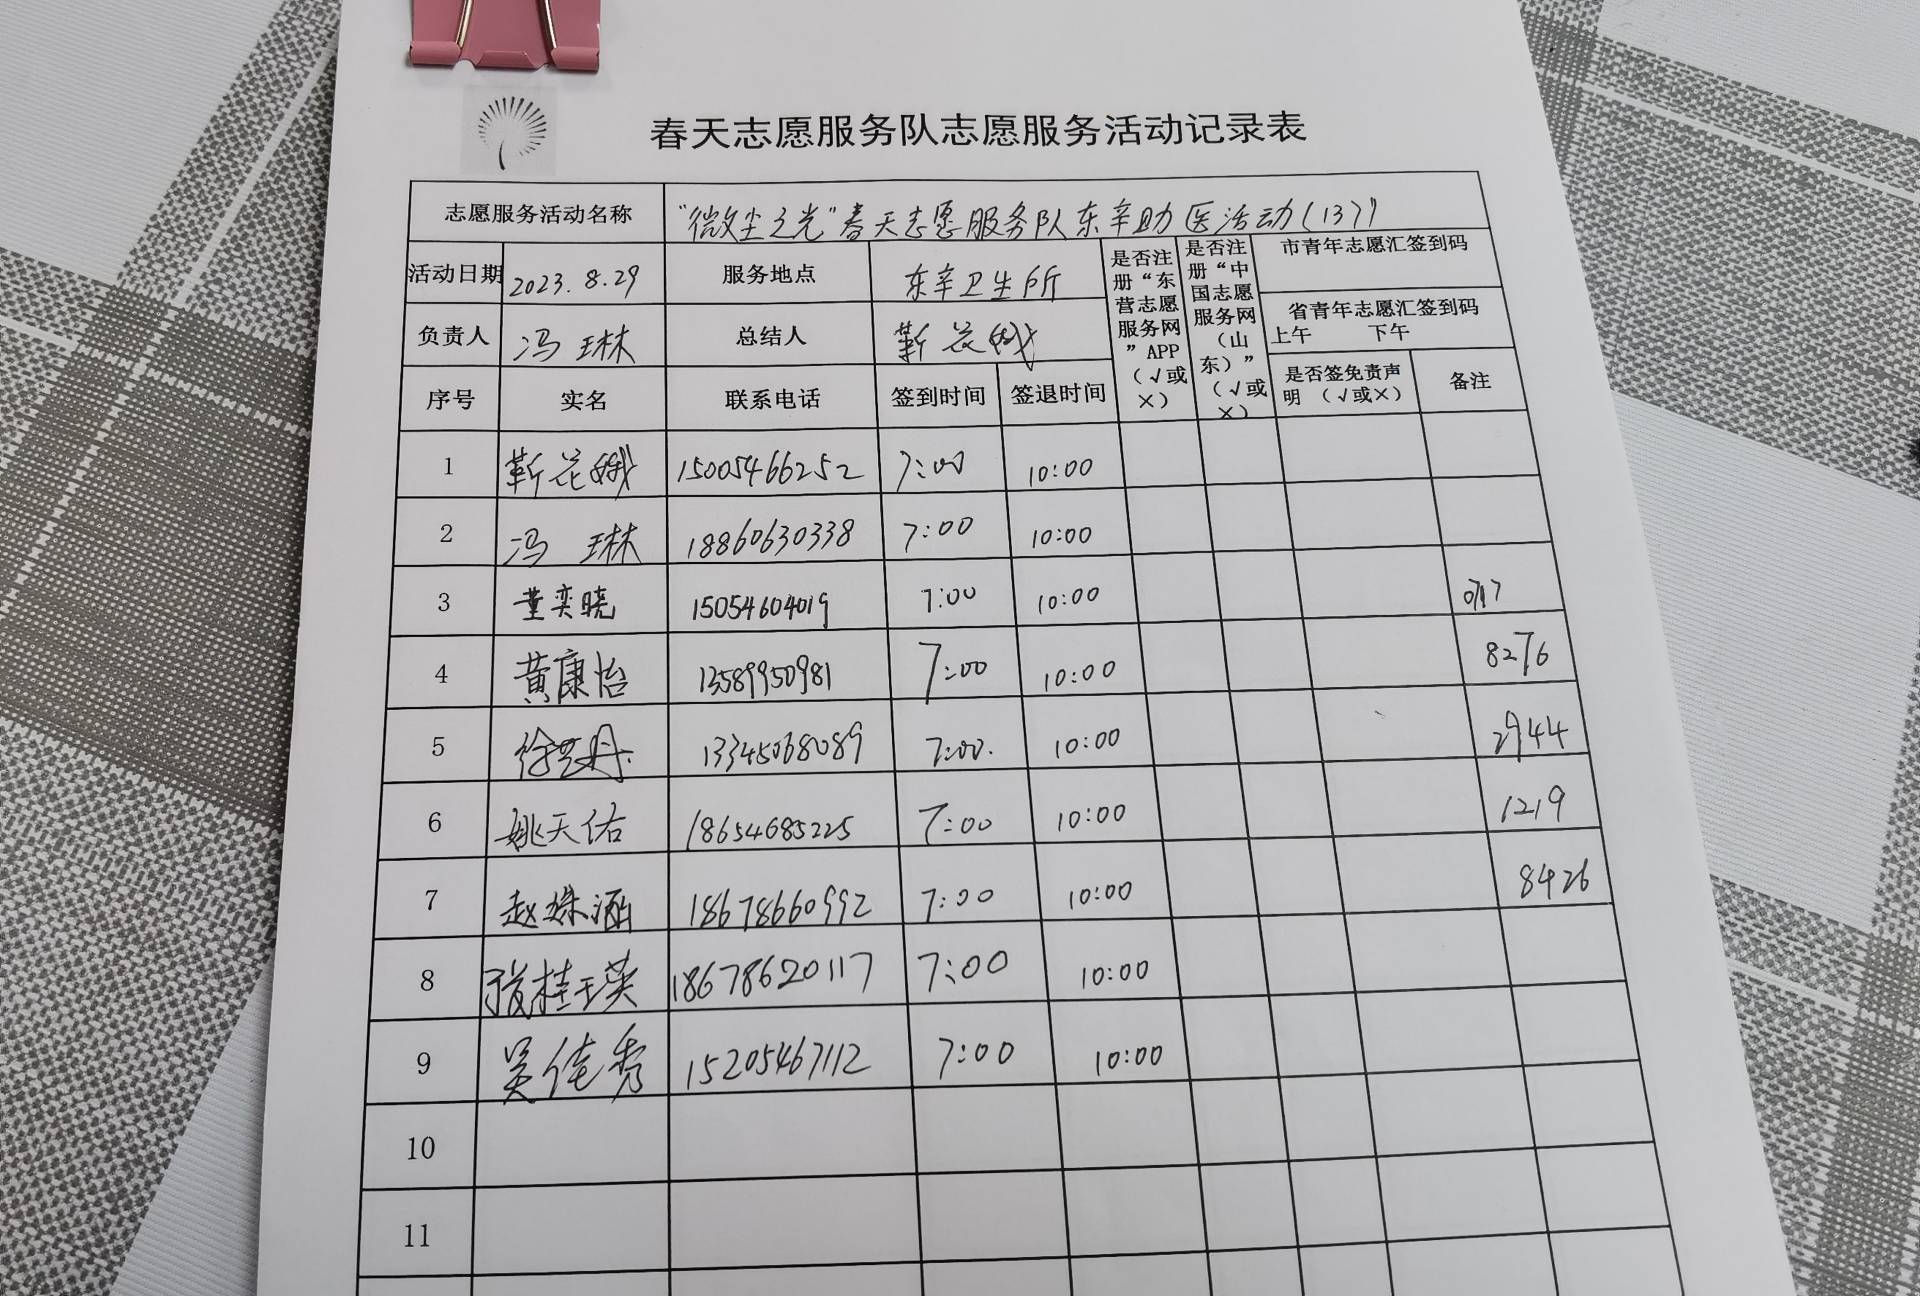 春天志愿服务队志愿服务活动记录表
志愿服务活动名称 "微尘之光"春天志愿服务队东辛助医活动(137)
活动日期 2023.8.29 服务地点 东辛卫生所 是否注册“东营志愿服务网”APP（√或×） 是否注册“中国志愿服务网（山东）”（√或×） 市青年志愿汇签到码
省青年志愿汇签到码
上午 下午
负责人 冯琳 总结人 靳花娥
序号 实名 联系电话 签到时间 签退时间 是否签免责声明（√或×） 备注
1 靳花娥 15005466252 7:00 10:00
2 冯琳 18860630338 7:00 10:00
3 董奕晓 15054604019 7:00 10:00
4 黄康怡 13589950981 7:00 10:00 8276
5 徐艺丹 13345068089 7:00. 10:00 2944
6 姚天佑 18654685225 7:00 10:00 1219
7 赵姝涵 18678660992 7:00 10:00 8426
8 张桂英 18678620117 7:00 10:00
9 吴佳秀 15205467112 7:00 10:00
10
11